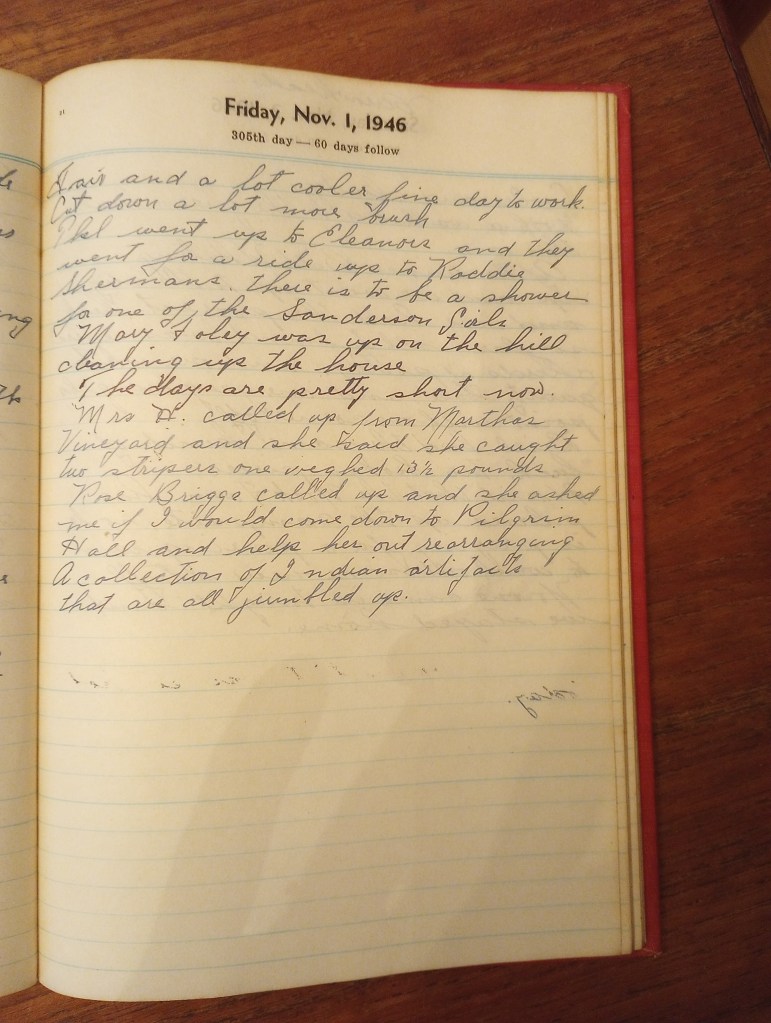 Friday, Nov. 1, 1946
305th day — 60 days follow
Fair and a lot cooler fine day to work.
Cut down a lot more brush
went up to Eleanors and they
went for a ride up to Roddie
Shermans. there is to be a shower
for one of the Sanderson Girls
Mary Foley was up on the hill
cleaning up the house
The days are pretty short now.
Mrs H. called up from Marthas
Vineyard and she said she caught
two stripers one weghed 13½ pounds
Rose Briggs called up and she asked
me if I would come down to Pilgrim
Hall and help her out rearranging
A collection of Indian artifacts
that are all jumbled up.